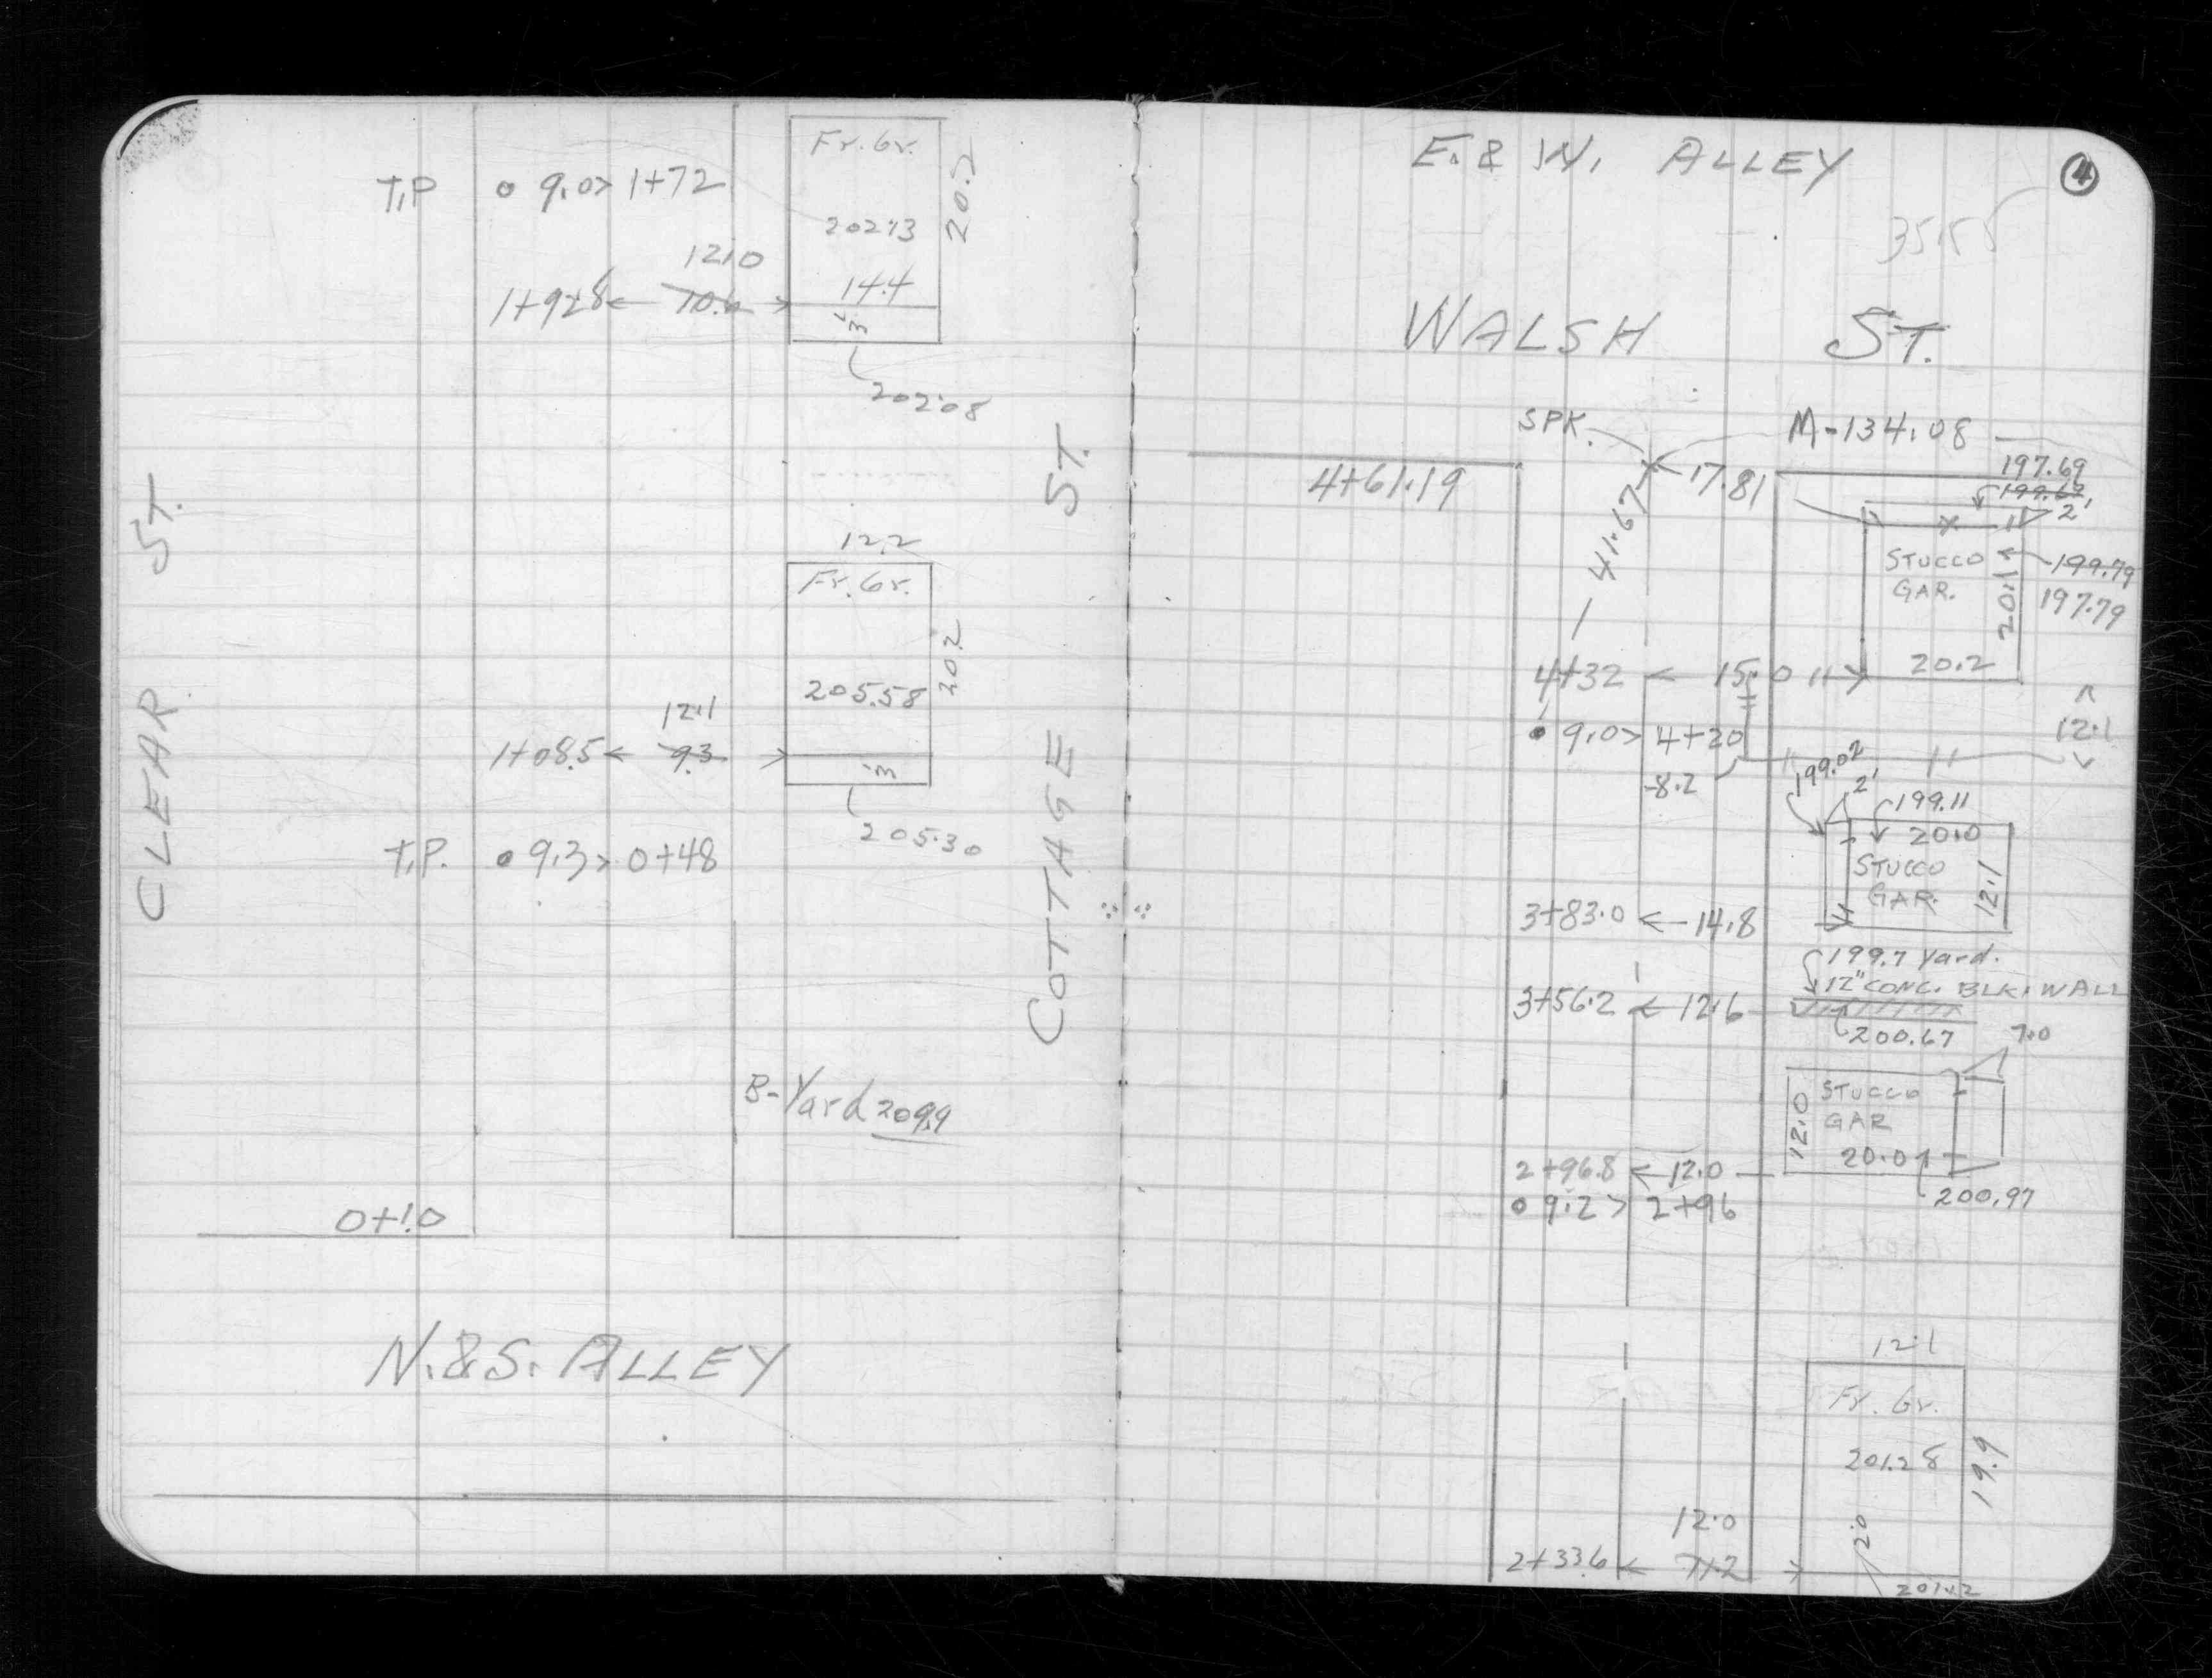 Fr. Gr.
T.P. 9.0 > 1+72
20.2
202.13
12.0
14.4
1+92.8 ← 10.6 →
3'
202.08
CLEAR ST.
COTTAGE ST.
12.2
Fr. Gr.
20.2
205.58
12.1
1+08.5 ← 9.3 →
3'
205.30
T.P. 9.3 > 0+48
B-Yard 209.9
0+1.0
N. & S. ALLEY
E. & W. ALLEY
4
WALSH ST.
SPK.
M-134.08
4+61.19
17.81
197.69
199.69
2'
41.67
STUCCO
GAR.
20.1
199.79
197.79
4+32 ← 15.0 →
20.2
9.0 > 4+20
12.1
-8.2
199.02
2'
199.11
20.0
STUCCO
GAR.
12.1
3+83.0 ← 14.8
199.7 Yard.
12" CONC. BLK. WALL
3+56.2 ← 12.6
200.67
7.0
STUCCO
GAR
12.0
20.0
2+96.8 ← 12.0
9.2 > 2+96
200.97
12.1
Fr. Gr.
201.28
19.9
12.0
2.0
2+33.6 ← 11.2 →
201.12